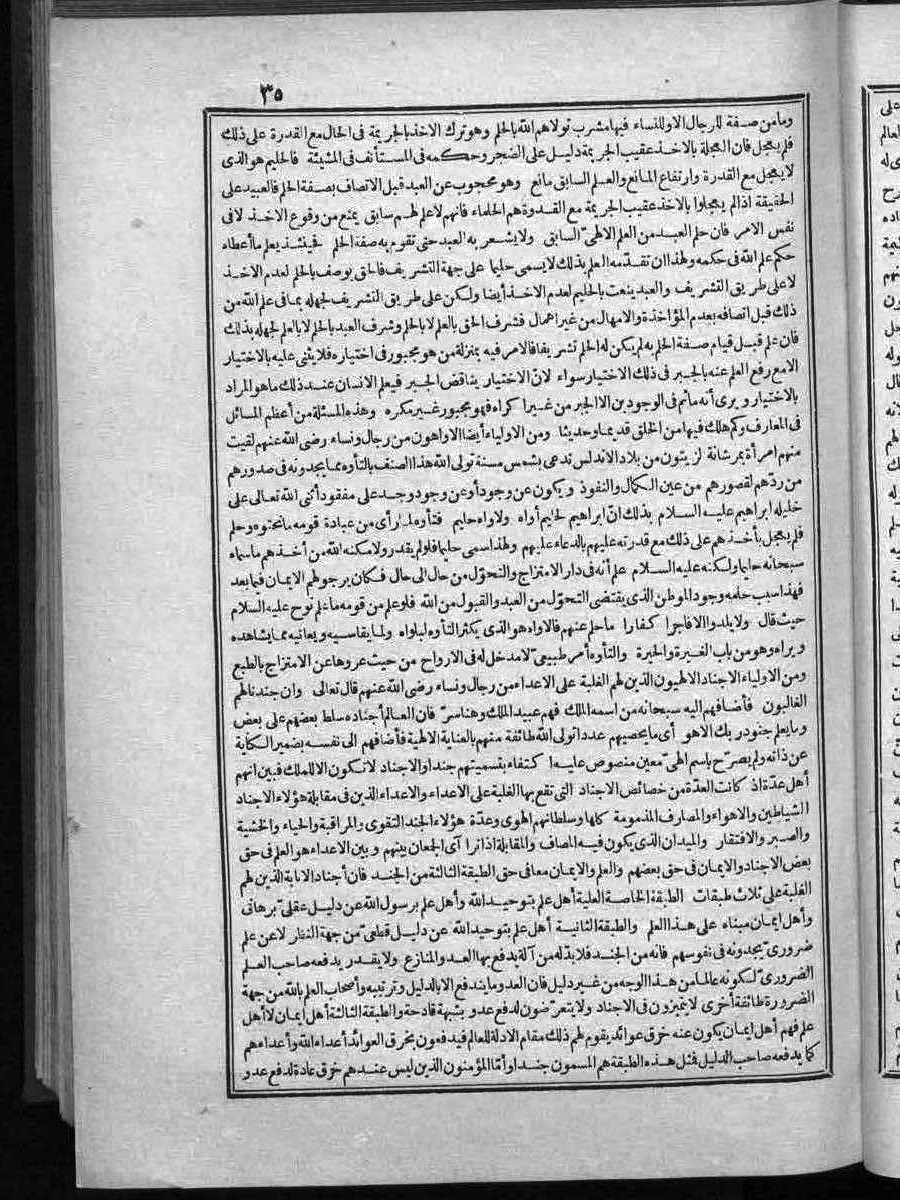 ٣٥
ومامن صفة للرجال الاوللنساء فيها مشرب تولاهم الله بالحلم وهو ترك الاخذ بالجريمة فى الحال مع القدرة على ذلك
فلم يعجل فان العجلة بالاخذ عقيب الجريمة دليل على الضجر وحكمه فى المستأنف فى المشيئة فالحليم هو الذى
لا يعجل مع القدرة وارتفاع المانع والعلم السابق مانع وهو محجوب عن العبد قبل الاتصاف بصفة الحلم فالعبيد على
الحقيقة اذالم يعجلوا بالاخذ عقيب الجريمة مع القدرة هم الحلماء فانهم لاعلم لهم سابق يمنع من وقوع الاخذ لافى
نفس الامر فان حلم العبد من العلم الالهىّ السابق ولا يشعر به العبد حتى تقوم به صفة الحلم فحينئذ يعلم ما أعطاه
حكم علم الله فى حكمه ولهذا ان تقدّمه العلم بذلك لا يسمى حليما على جهة التشريف فالحق يوصف بالحلم لعدم الاخذ
لا على طريق التشريف والعبد ينعت بالحليم لعدم الاخذ أيضا ولكن على طريق التشريف لجهله بما فى علم الله من
ذلك قبل اتصافه بعدم المؤاخذة والامهال من غير اهمال فشرف الحق بالعلم لا بالحلم وشرف العبد بالحلم لا بالعلم لجهله بذلك
فان علم قبل قيام صفة الحلم به لم يكن له الحلم تشريفا فالامر فيه بمنزلة من هو مجبور فى اختياره فلا يثنى عليه بالاختيار
الامع رفع العلم عنه بالجبر فى ذلك الاختيار سواء لانّ الاختيار يناقض الجبر فيعلم الانسان عند ذلك ماهو المراد
بالاختيار ويرى أنه ماثم فى الوجودين الا الجبر من غير اكراه فهو مجبور غير مكره وهذه المسئلة من أعظم المسائل
فى المعارف وكم هلك فيها من الخلق قديما وحديثا ومن الاولياء أيضا الاواهون من رجال ونساء رضى الله عنهم لقيت
منهم امرأة بمرشانة لزيتون من بلاد الاندلس تدعى بشمس مسنة تولى الله هذا الصنف بالتأوه مما يجدونه فى صدورهم
من ردّهم لقصورهم من عين الكمال والنفوذ ويكون عن وجود أو عن وجود وجد على مفقود أثنى الله تعالى على
خليله ابراهيم عليه السلام بذلك انّ ابراهيم لحليم أواه ولاواه حليم فتأوه لما رأى من عبادة قومه ما نحتوه وحلم
فلم يعجل بأخذهم على ذلك مع قدرته عليهم بالدعاء عليهم ولهذا سمى حليما فلو لم يقدر ولا مكنه الله من أخذهم ماسماه
سبحانه حليما ولكنه عليه السلام علم أنه فى دار الامتزاج والتحوّل من حال الى حال فكان يرجو لهم الايمان فيما بعد
فهذا سبب حلمه وجود الموطن الذى يقتضى التحوّل من العبد والقبول من الله فلو علم من قومه ما علم نوح عليه السلام
حيث قال ولا يلدوا الافاجرا كفارا ما حلم عنهم فالاواه هو الذى يكثر التأوه لبلواه ولما يقاسيه ويعانيه مما يشاهده
ويراه وهو من باب الغيرة والحيرة والتأوه أمر طبيعىّ لا مدخل له فى الارواح من حيث عروها عن الامتزاج بالطبع
ومن الاولياء الاجناد الالهيون الذين لهم الغلبة على الاعداء من رجال ونساء رضى الله عنهم قال تعالى وان جندنا لهم
الغالبون فأضافهم اليه سبحانه من اسمه الملك فهم عبيد الملك وهنا سرّ فان العالم أجناده سلط بعضهم على بعض
وما يعلم جنود ربك الا هو أى ما يحصيهم عددا تولى الله طائفة منهم بالعناية الالهية فأضافهم الى نفسه بضمير الكناية
عن ذاته ولم يصرّح باسم الهىّ معين منصوص عليه اكتفاء بتسميتهم جندا والاجناد لا تكون الا للملك فبين انهم
أهل عدّة اذ كانت العدّة من خصائص الاجناد التى تقع بها الغلبة على الاعداء والاعداء الذين فى مقابلة هؤلاء الاجناد
الشياطين والاهواء والمصارف المذمومة كلها وسلطانهم الهوى وعدّة هؤلاء الجند التقوى والمراقبة والحياء والخشية
والصبر والافتقار والميدان الذى يكون فيه المصاف والمقابلة اذا ترا آى الجمعان بينهم وبين الاعداء هو العلم فى حق
بعض الاجناد والايمان فى حق بعضهم والعلم والايمان معا فى حق الطبقة الثالثة من الجند فان أجناد الانابة الذين لهم
الغلبة على ثلاث طبقات الطبقة الخاصة العلية أهل علم بتوحيد الله وأهل علم برسول الله عن دليل عقلىّ برهانى
وأهل ايمان مبناه على هذا العلم والطبقة الثانية أهل علم بتوحيد الله عن دليل قطعىّ من جهة النظر لا عن علم
ضرورىّ يجدونه فى نفوسهم فانه من الجند فلا بدّ له من آلة يدفع بها العدو والمنازع ولا يقدر يدفعه صاحب العلم
الضرورىّ لكونه عالما من هذا الوجه من غير دليل فان العدو ما يندفع الا بالدليل وترتيبه وأصحاب العلم بالله من جهة
الضرورة طائفة أخرى لا يتميزون فى الاجناد ولا يتعرّضون لدفع عدو بشبهة قادحة والطبقة الثالثة أهل ايمان لا أهل
علم فهم أهل ايمان يكون عنه خرق عوائد يقوم لهم ذلك مقام الادلة للعالم فيدفعون بخرق العوائد أعداء الله وأعداءهم
كما يدفعه صاحب الدليل فمثل هذه الطبقة هم المسمون جندا وأمّا المؤمنون الذين ليس عندهم خرق عادة لدفع عدو